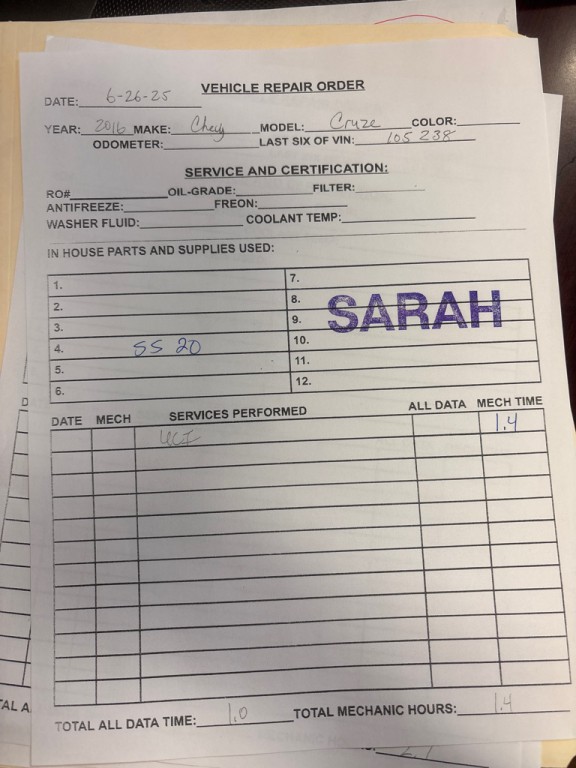 VEHICLE REPAIR ORDER
DATE: 6-26-25
YEAR: 2016 MAKE: Chevy MODEL: Cruze COLOR:
ODOMETER: LAST SIX OF VIN: 105 238
SERVICE AND CERTIFICATION:
RO# OIL-GRADE: FILTER:
ANTIFREEZE: FREON:
WASHER FLUID: COOLANT TEMP:
IN HOUSE PARTS AND SUPPLIES USED:
1. 7.
2. 8. SARAH
3. 9.
4. SS 20 10.
5. 11.
6. 12.
DATE MECH SERVICES PERFORMED ALL DATA MECH TIME
UCI 1.4
TOTAL ALL DATA TIME: 1.0 TOTAL MECHANIC HOURS: 1.4